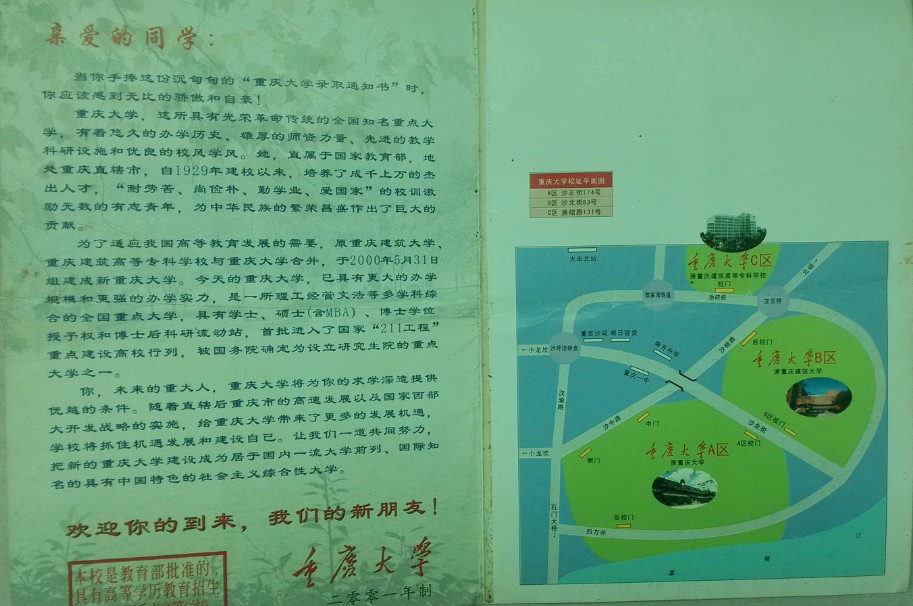 亲爱的同学：
当你手捧这份沉甸甸的“重庆大学录取通知书”时，
你应该感到无比的骄傲和自豪！
重庆大学，这所具有光荣革命传统的全国知名重点大
学，有着悠久的办学历史、雄厚的师资力量、先进的教学
科研设施和优良的校风学风。她，直属于国家教育部，地
处重庆直辖市，自1929年建校以来，培养了成千上万的杰
出人才，“耐劳苦、尚俭朴、勤学业、爱国家”的校训激
励无数的有志青年，为中华民族的繁荣昌盛作出了巨大的
贡献。
为了适应我国高等教育发展的需要，原重庆建筑大学、
重庆建筑高等专科学校与重庆大学合并，于2000年5月31日
组建成新重庆大学。今天的重庆大学，已具有更大的办学
规模和更强的办学实力，是一所理工经管文法等多学科综
合的全国重点大学，具有学士、硕士(含MBA)、博士学位
授予权和博士后科研流动站，首批进入了国家“211工程”
重点建设高校行列，被国务院确定为设立研究生院的重点
大学之一。
你，未来的重大人，重庆大学将为你的求学深造提供
优越的条件。随着直辖后重庆市的高速发展以及国家西部
大开发战略的实施，给重庆大学带来了更多的发展机遇，
学校将抓住机遇发展和建设自己。让我们一道共同努力，
把新的重庆大学建设成为居于国内一流大学前列、国际知
名的具有中国特色的社会主义综合性大学。
欢迎你的到来，我们的新朋友！
重庆大学
二零零一年制
本校是教育部批准的，
具有高等学历教育招生
重庆大学校址平面图
A区 沙正街174号
B区 沙北街83号
C区 渝碚路131号
火车北站
重庆大学C区
原重庆建筑高等专科学校
校门
渝碚路
北碚→
立交桥
重百沙百 明日百货
←小龙坎
沙坪坝转盘
南开中学
重庆一中
沙杨路
后校门
重庆大学B区
原重庆建筑大学
汉渝路
沙中路
中门
侧门
B区校门
沙北街
A区校门
←小龙坎
重庆大学A区
原重庆大学
后校门
石门大桥↓
四方井
嘉
陵
江